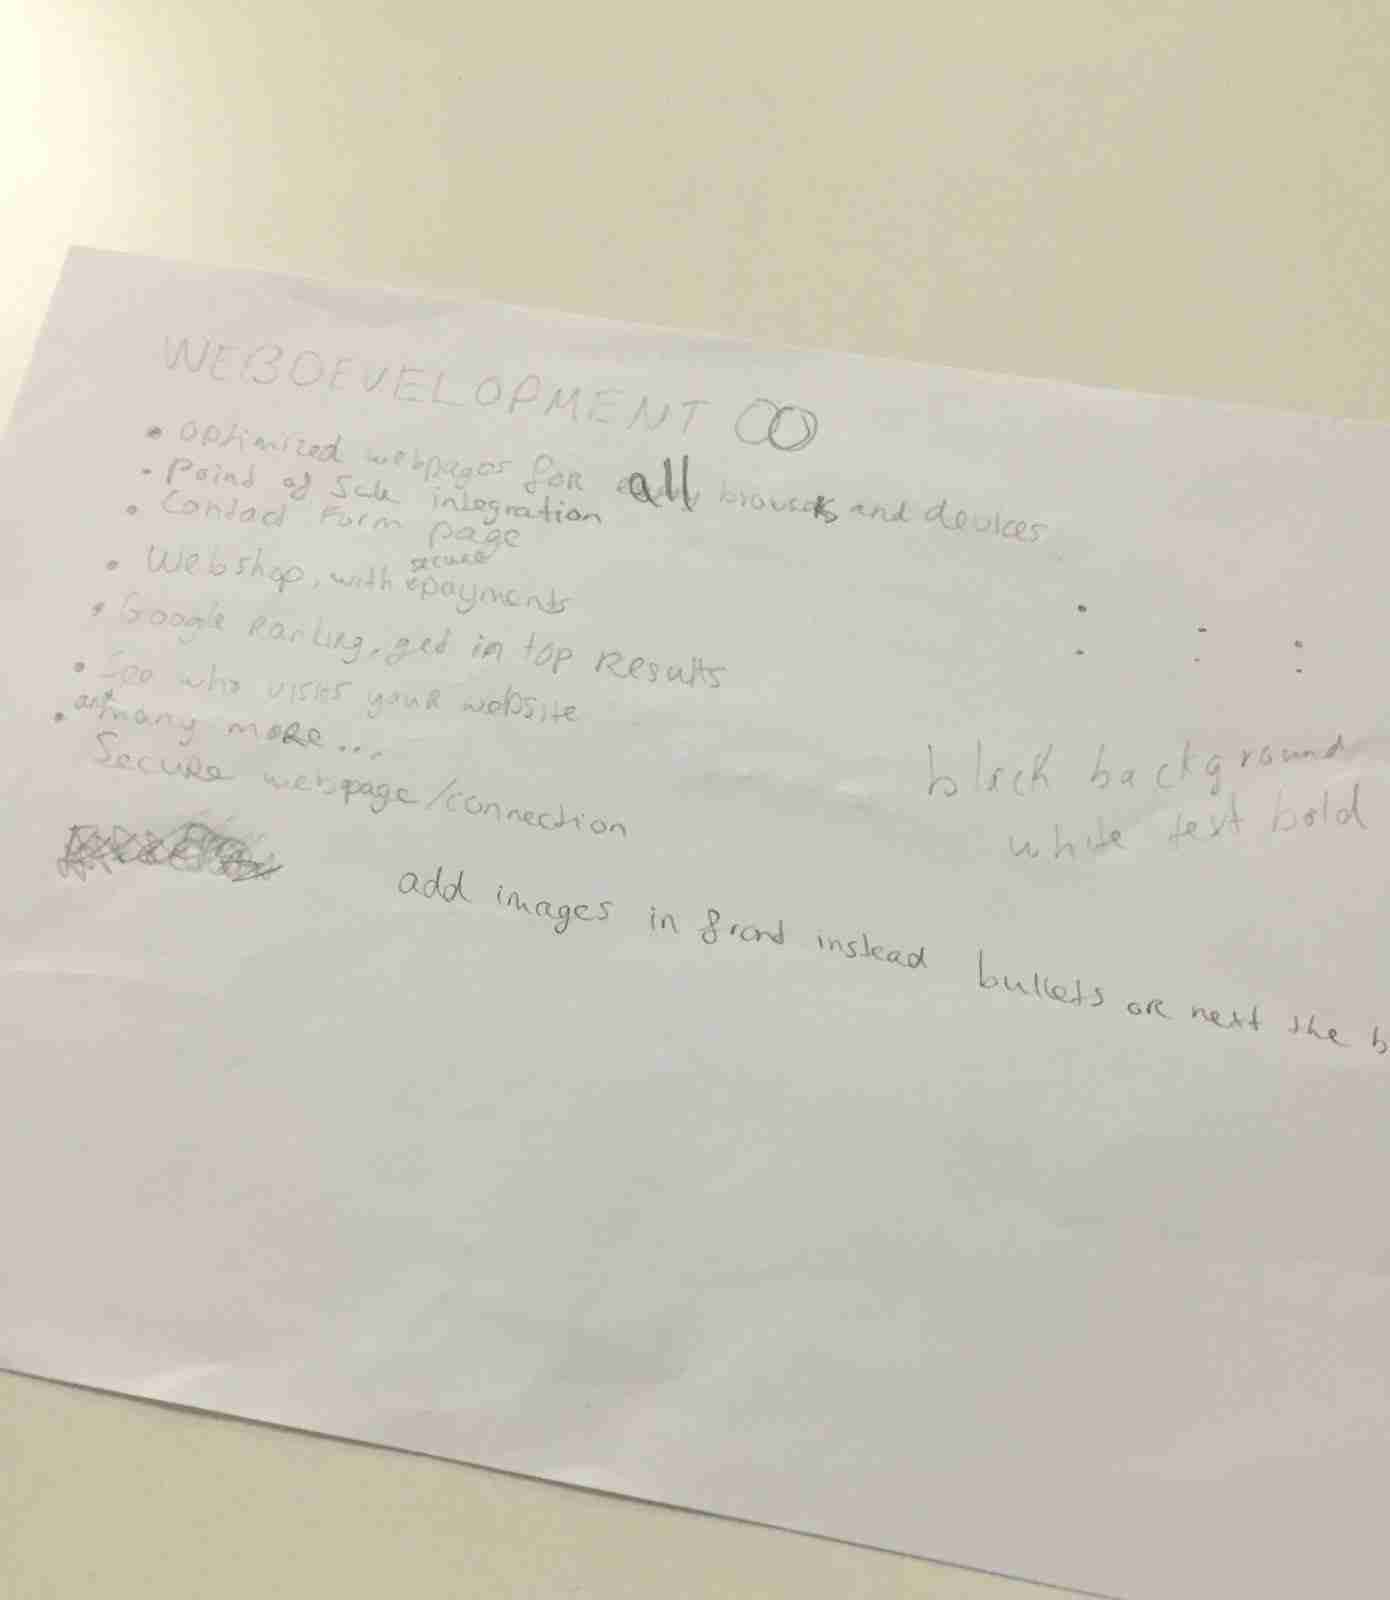 WEBDEVELOPMENT
• optimized webpages for all browsers and devices
• Point of Sale integration
• Contact Form page
• Webshop, with secure epayments
• Google Ranking, get in top Results
• See who visits your website
and many more...
• Secure webpage/connection
black background
white text bold
add images in front instead bullets or next the b